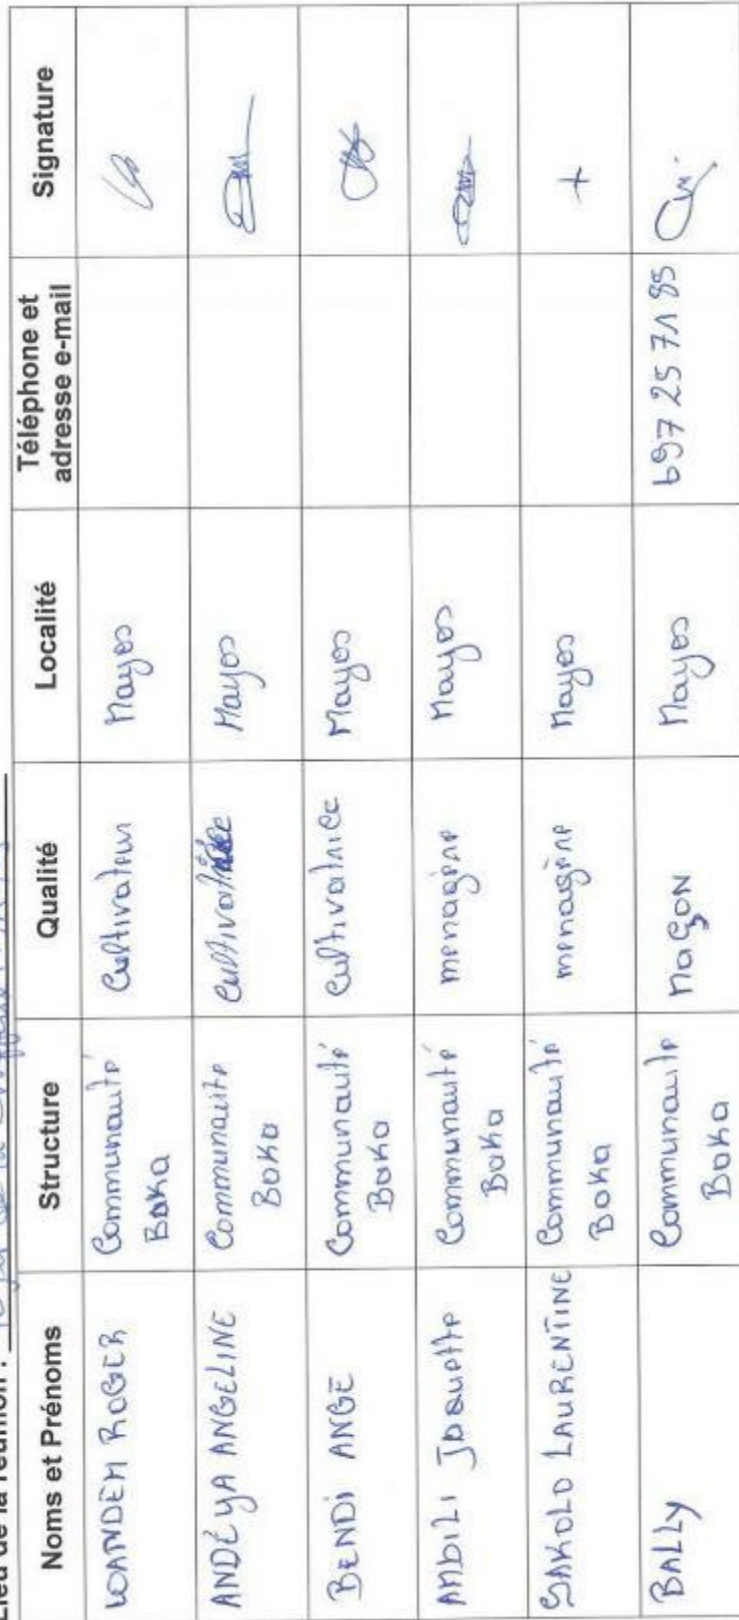 Lieu de la réunion :
Noms et Prénoms Structure Qualité Localité Téléphone et adresse e-mail Signature
WANDEM ROGER Communauté Baka Cultivateur Mayos
ANDÉYA ANGELINE Communauté Baka Cultivatrice Mayos
BENDI ANGE Communauté Baka Cultivatrice Mayos
AMBILI Jaquette Communauté Baka menagère Mayos
SAKOLO LAURENTINE Communauté Baka menagère Mayos +
BALLY Communauté Baka MAÇON Mayos 697 25 71 85